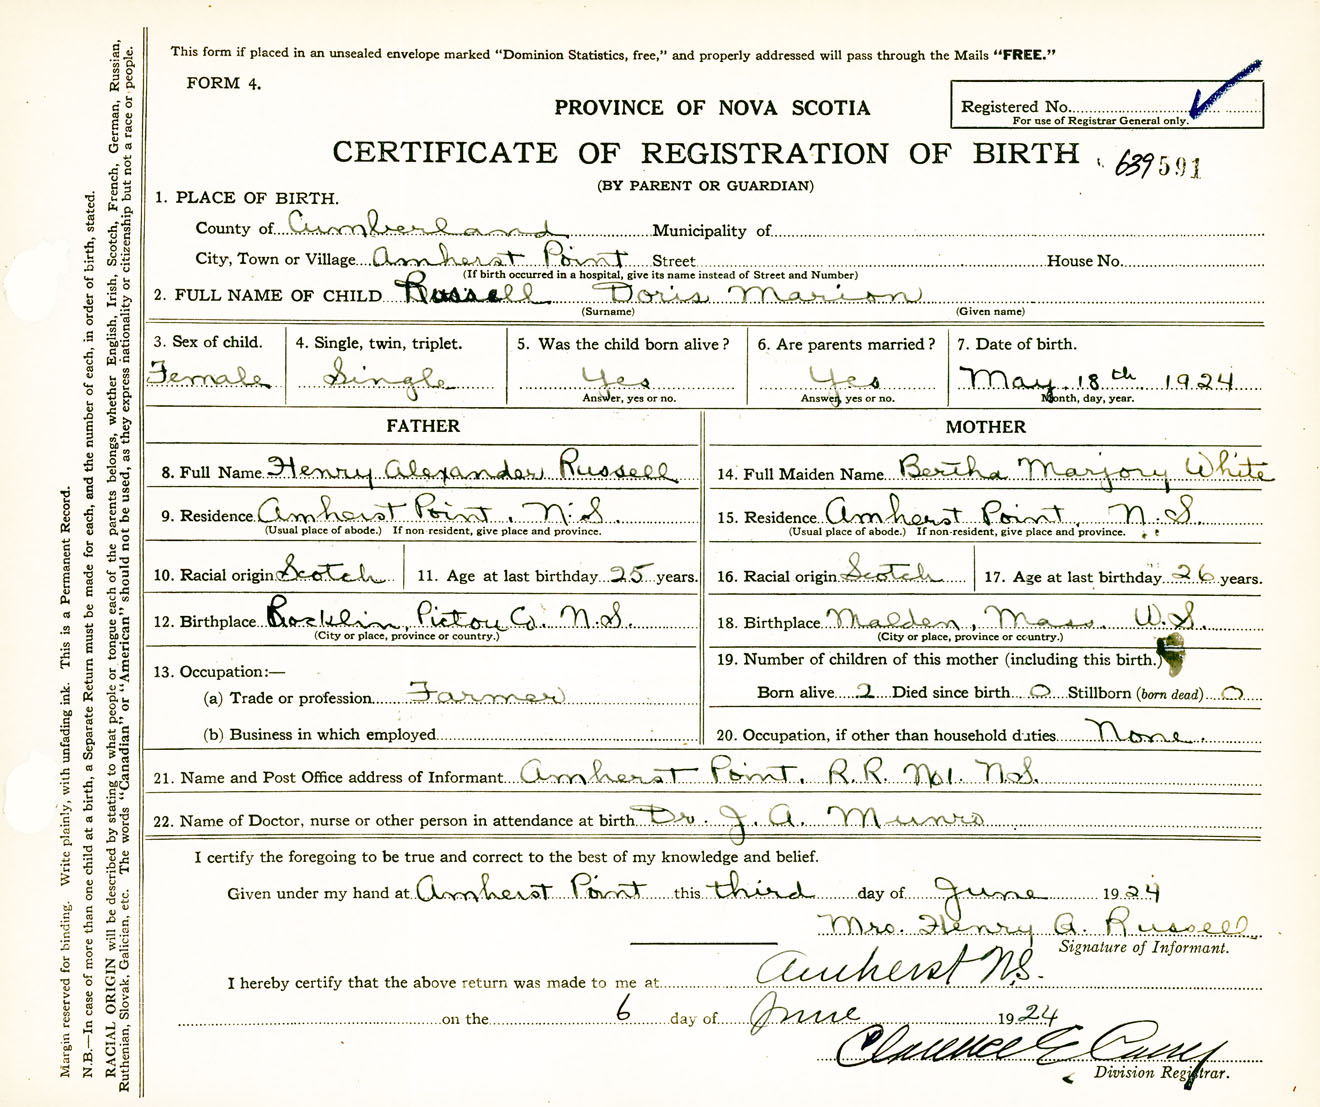 This form if placed in an unsealed envelope marked "Dominion Statistics, free," and properly addressed will pass through the Mails "FREE."
FORM 4.
PROVINCE OF NOVA SCOTIA
Registered No.
For use of Registrar General only.
CERTIFICATE OF REGISTRATION OF BIRTH
639 591
(BY PARENT OR GUARDIAN)
1. PLACE OF BIRTH.
County of Cumberland Municipality of
City, Town or Village Amherst Point Street House No.
(If birth occurred in a hospital, give its name instead of Street and Number)
2. FULL NAME OF CHILD Russell Doris Marion
(Surname) (Given name)
3. Sex of child. 4. Single, twin, triplet. 5. Was the child born alive? 6. Are parents married? 7. Date of birth.
Female Single Yes Yes May 18th 1924
Answer, yes or no. Answer, yes or no. Month, day, year.
FATHER MOTHER
8. Full Name Henry Alexander Russell 14. Full Maiden Name Bertha Marjory White
9. Residence Amherst Point, N.S. 15. Residence Amherst Point, N.S.
(Usual place of abode.) If non-resident, give place and province. (Usual place of abode.) If non-resident, give place and province.
10. Racial origin Scotch 11. Age at last birthday 25 years. 16. Racial origin Scotch 17. Age at last birthday 26 years.
12. Birthplace Rocklin, Pictou Co. N.S. 18. Birthplace Malden, Mass. U.S.
(City or place, province or country.) (City or place, province or country.)
13. Occupation:— 19. Number of children of this mother (including this birth.)
(a) Trade or profession Farmer Born alive 2 Died since birth 0 Stillborn (born dead) 0
(b) Business in which employed 20. Occupation, if other than household duties None.
21. Name and Post Office address of Informant Amherst Point, R.R. No1. N.S.
22. Name of Doctor, nurse or other person in attendance at birth Dr. J. A. Munro
I certify the foregoing to be true and correct to the best of my knowledge and belief.
Given under my hand at Amherst Point this third day of June 1924
Mrs. Henry A. Russell
Signature of Informant.
I hereby certify that the above return was made to me at Amherst N.S.
on the 6 day of June 1924
Clarence E
Division Registrar.
Margin reserved for binding. Write plainly, with unfading ink. This is a Permanent Record.
N.B.—In case of more than one child at a birth, a Separate Return must be made for each, and the number of each, in order of birth, stated.
RACIAL ORIGIN will be described by stating to what people or tongue each of the parents belongs, whether English, Irish, Scotch, French, German, Russian,
Ruthenian, Slovak, Galician, etc. The words "Canadian" or "American" should not be used, as they express nationality or citizenship but not a race or people.